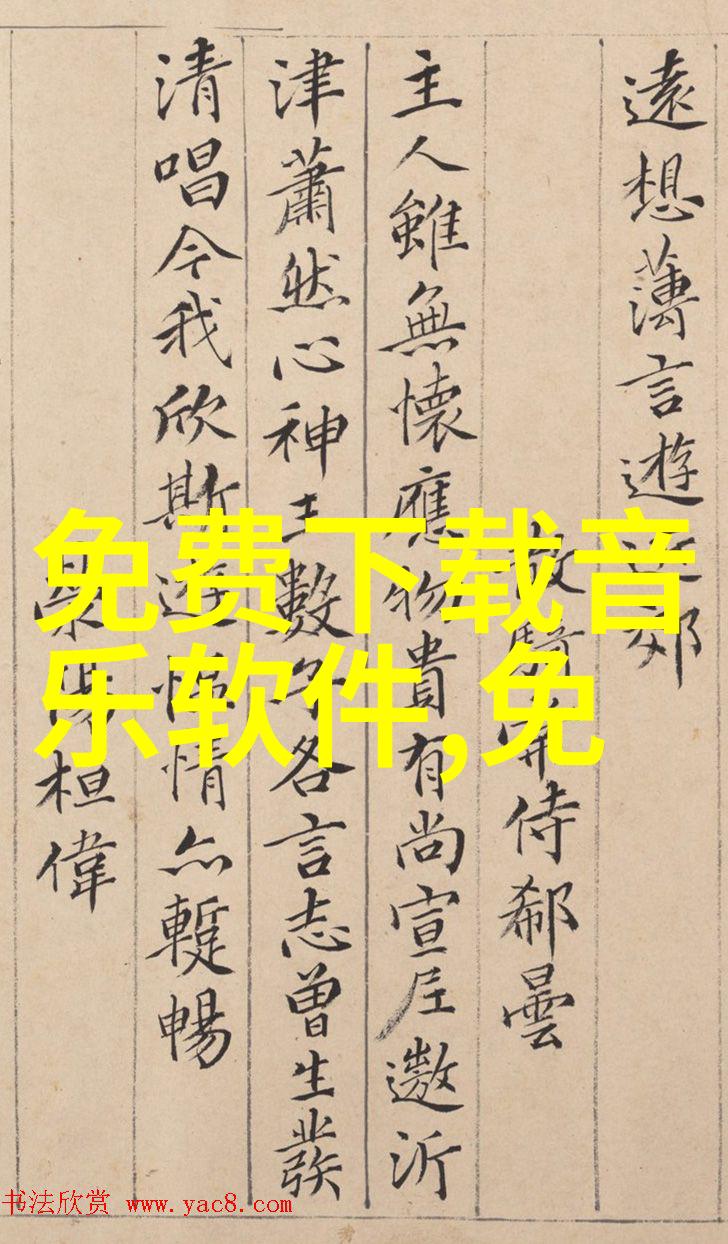 遠想薄言遊近郊
散騎常侍郗曇
主人雖無懷應物貴有尚宣尼遨沂
津蕭然心神王數子各言志曾生發
清唱今我欣斯遊慍情亦暫暢
滎陽桓偉
免费下载音
乐软件,免
书法欣赏 www.yac8.com